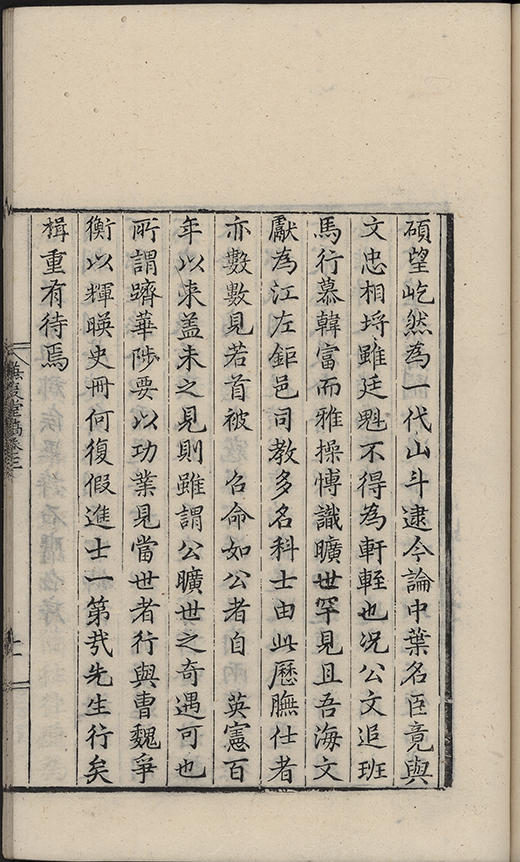 碩望屹然為一代山斗逮今論中葉名臣竟與
文忠相埒雖廷魁不得為軒輊也况公文追班
馬行慕韓富而雅操愽識曠世罕見且吾海文
獻為江左鉅邑司教多名科士由此歷膴仕者
亦數數見若首被 召命如公者自 英憲百
年以来盖未之見則雖謂公曠世之奇遇可也
所謂躋華陟要以功業見當世者行與曹魏爭
衡以輝暎史冊何復假進士一第㢤先生行矣
楫重有待焉
堂稿卷三
十一